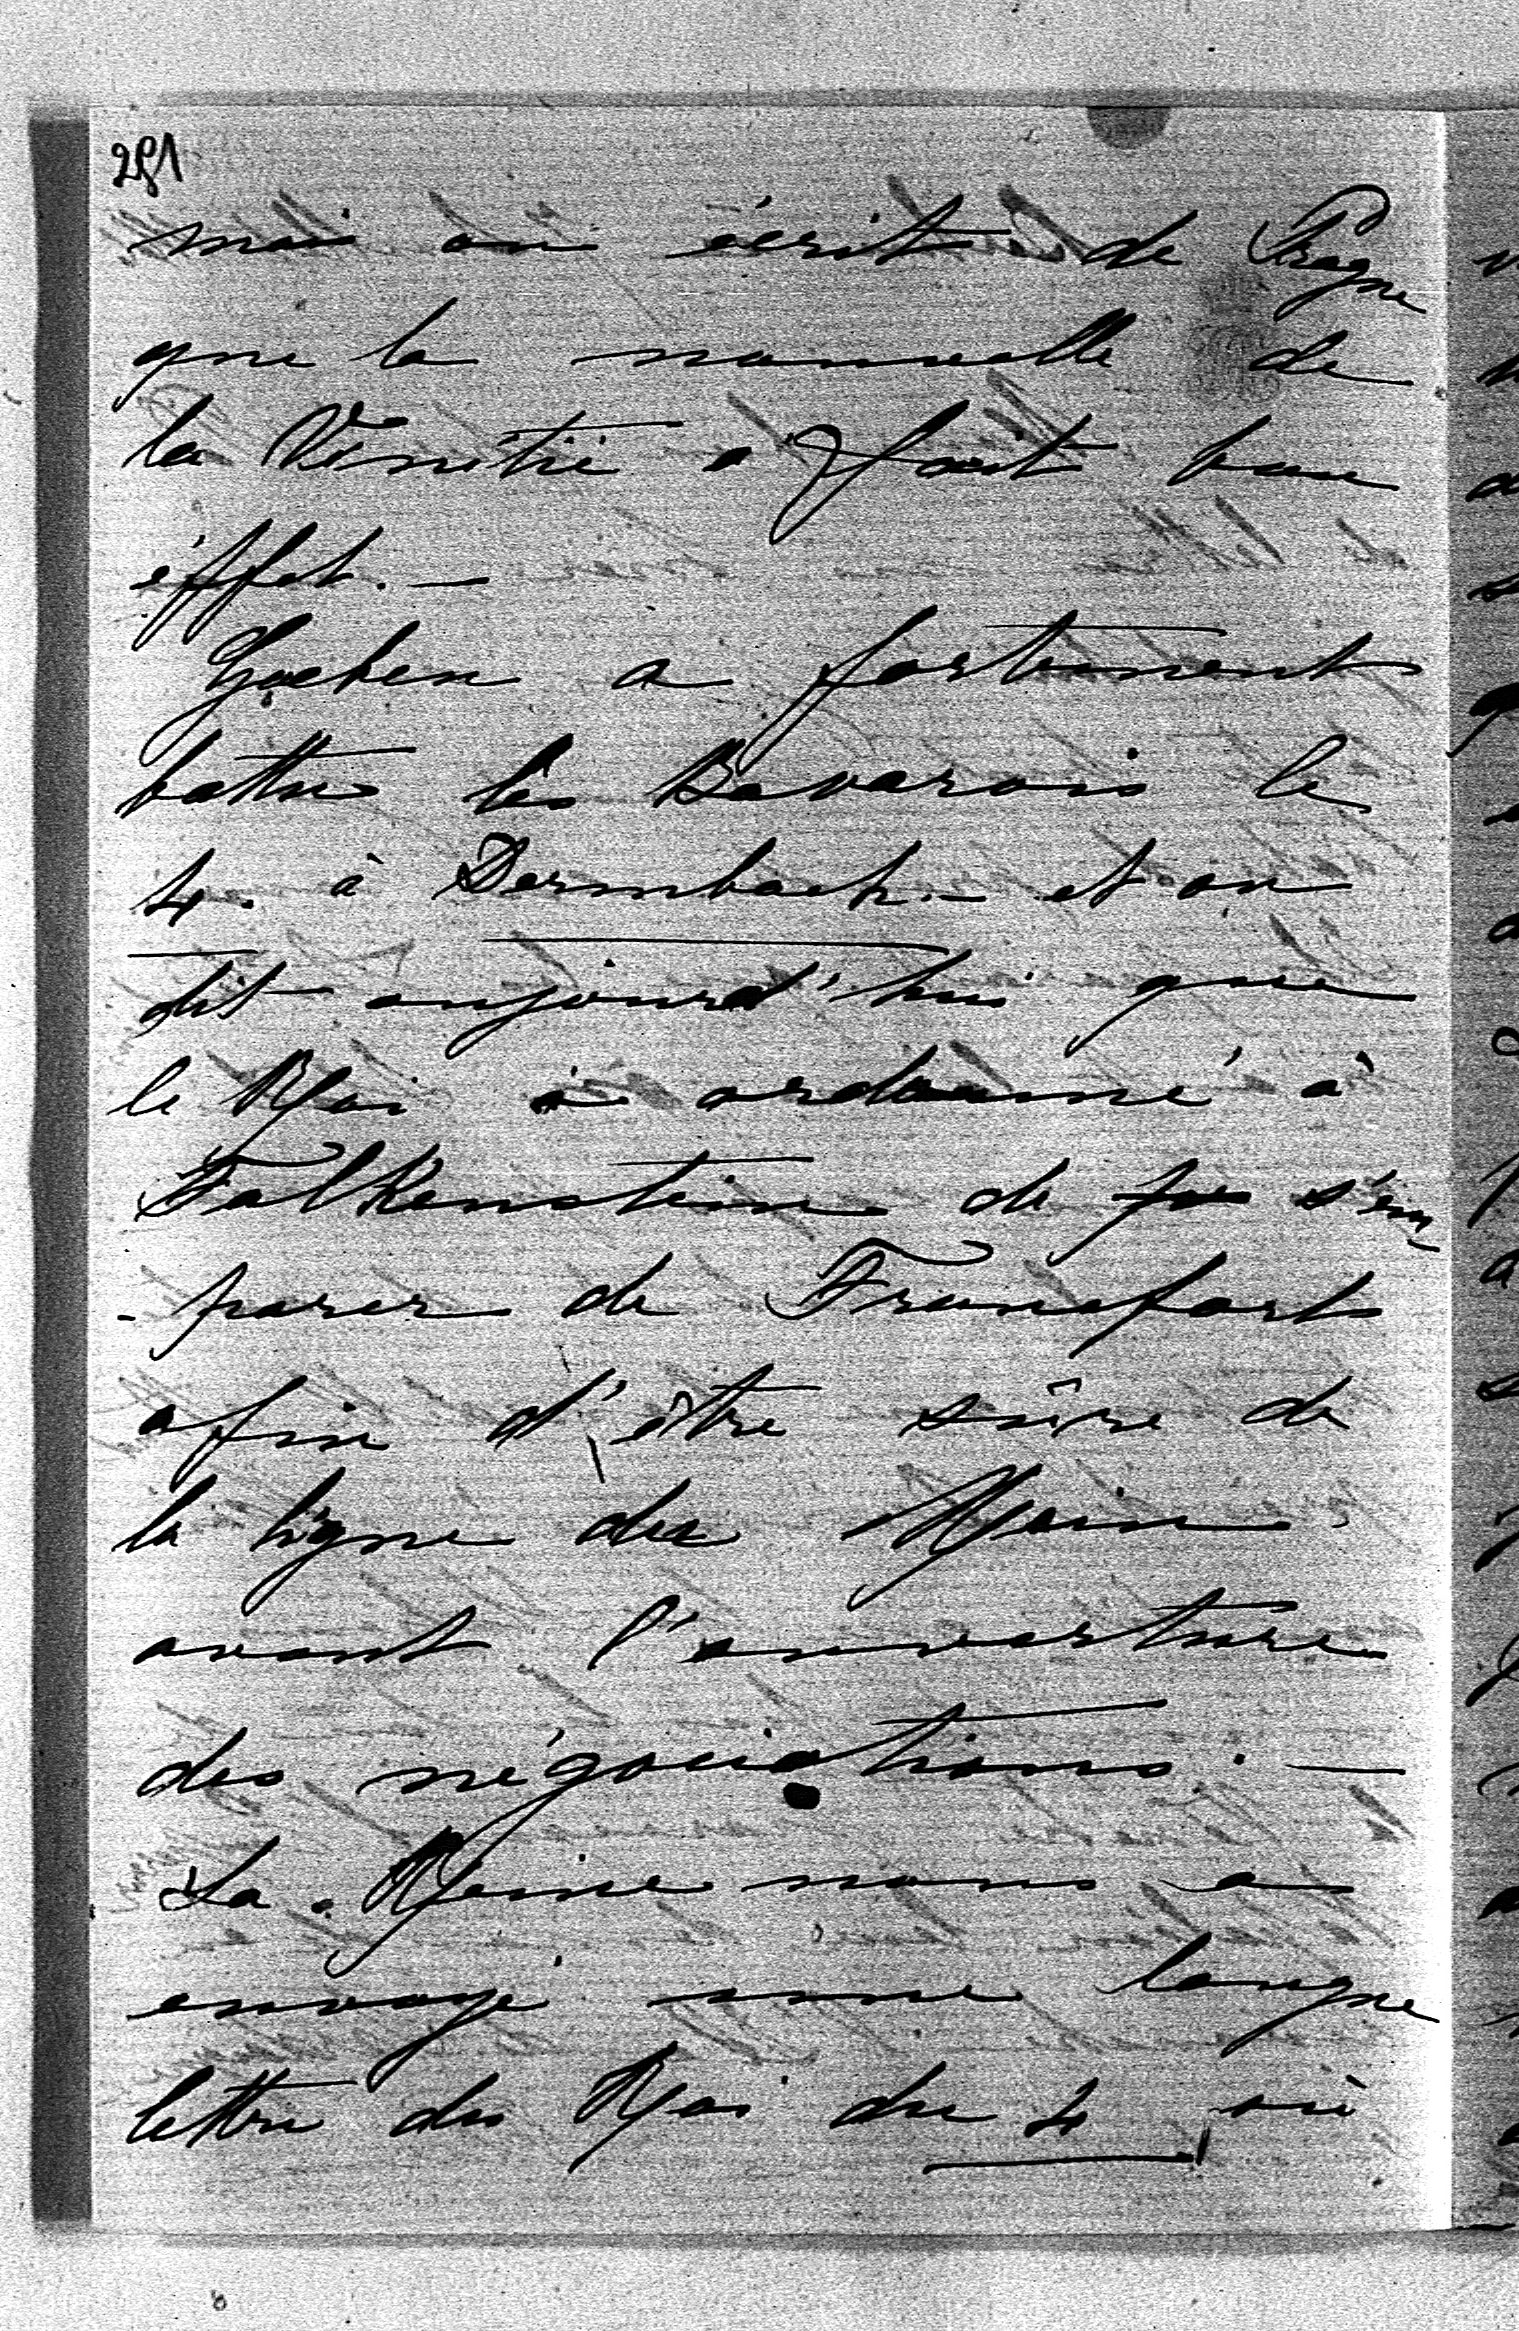 251
mais on écrit de Prague
que la nouvelle de
la Vénétie a fait bon
éffet. —
Goeben a fortement
battu les Bavarois le
4. à Dermbach. — et on
dit aujourd'hui que
le Roi a ordonné à
Falkenstein de s'em
-parer de Francfort
afin d'être sûre de
la ligne du Main
avant l'ouverture
des négociations. —
La Reine nous a
envoyé une longue
lettre du Roi du 4 où